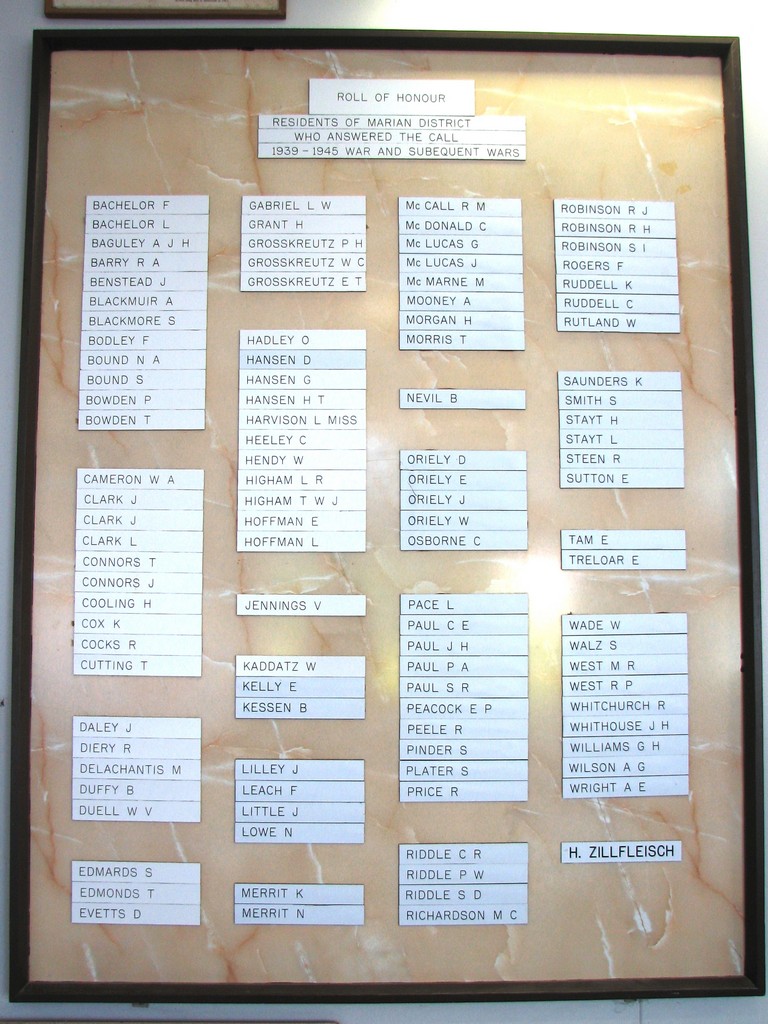 ROLL OF HONOUR
RESIDENTS OF MARIAN DISTRICT
WHO ANSWERED THE CALL
1939 - 1945 WAR AND SUBEQUENT WARS
BACHELOR F
BACHELOR L
BAGULEY A J H
BARRY R A
BENSTEAD J
BLACKMUIR A
BLACKMORE S
BODLEY F
BOUND N A
BOUND S
BOWDEN P
BOWDEN T
CAMERON W A
CLARK J
CLARK J
CLARK L
CONNORS T
CONNORS J
COOLING H
COX K
COCKS R
CUTTING T
DALEY J
DIERY R
DELACHANTIS M
DUFFY B
DUELL W V
EDMARDS S
EDMONDS T
EVETTS D
GABRIEL L W
GRANT H
GROSSKREUTZ P H
GROSSKREUTZ W C
GROSSKREUTZ E T
HADLEY O
HANSEN D
HANSEN G
HANSEN H T
HARVISON L MISS
HEELEY C
HENDY W
HIGHAM L R
HIGHAM T W J
HOFFMAN E
HOFFMAN L
JENNINGS V
KADDATZ W
KELLY E
KESSEN B
LILLEY J
LEACH F
LITTLE J
LOWE N
MERRIT K
MERRIT N
Mc CALL R M
Mc DONALD C
Mc LUCAS G
Mc LUCAS J
Mc MARNE M
MOONEY A
MORGAN H
MORRIS T
NEVIL B
ORIELY D
ORIELY E
ORIELY J
ORIELY W
OSBORNE C
PACE L
PAUL C E
PAUL J H
PAUL P A
PAUL S R
PEACOCK E P
PEELE R
PINDER S
PLATER S
PRICE R
RIDDLE C R
RIDDLE P W
RIDDLE S D
RICHARDSON M C
ROBINSON R J
ROBINSON R H
ROBINSON S I
ROGERS F
RUDDELL K
RUDDELL C
RUTLAND W
SAUNDERS K
SMITH S
STAYT H
STAYT L
STEEN R
SUTTON E
TAM E
TRELOAR E
WADE W
WALZ S
WEST M R
WEST R P
WHITCHURCH R
WHITHOUSE J H
WILLIAMS G H
WILSON A G
WRIGHT A E
H. ZILLFLEISCH